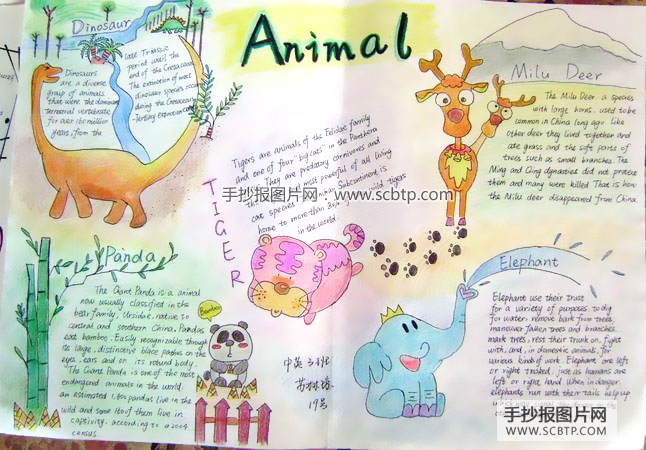 Animal
Dinosaur
Dinosaurs
are a diverse
group of animals
that were the dominant
terrestrial vertebrate
for over 160 million
years, from the
late Triassic
period until the
end of the Cretaceous
The extinction of most
dinosaur species occurred
during the Cretaceous
-Tertiary extinction
TIGER
Tigers are animals of the Felidae family
and one of four "big cats" in the Panthera
They are predatory carnivores and
the most powerful of all living
cat species Subcontinent is
home to more than wild tigers
in the world.
手抄报图片网 www.scbtp.com
Milu Deer
The Milu Deer, a species
with large horns, used to be
common in China long ago. Like
other deer they lived together and
ate grass and the soft parts of
trees such as small branches. The
Ming and Qing dynasties did not protect
them and many were killed. That is how
the Milu deer disappeared from China.
Panda
The Giant Panda is a animal
now usually classified in the
bear family, Ursidae, native to
central and southern China. Pandas
eat bamboo. Easily recognizable through
its large, distinctive black patches on the
eyes, ears and on its robust body.
The Giants Panda is one of the most
endangered animals in the world.
an estimated 1,600 pandas live in the
wild and some 160 of them live in
captivity, according to a 2004
census
Bamboo
中英
19号
Elephant
Elephant use their trust
for a variety of purposes, to dig
for water, remove bark from trees,
maneuver fallen trees and branches,
mark trees, rest their trunk on, fight
with, and, in domestic animals, for
various kinds of work. Elephant are left
or right tusked, just as humans are
left or right hand. When in danger,
elephants run with their tails help up
手抄报图片网
WWW.SCBTP.COM